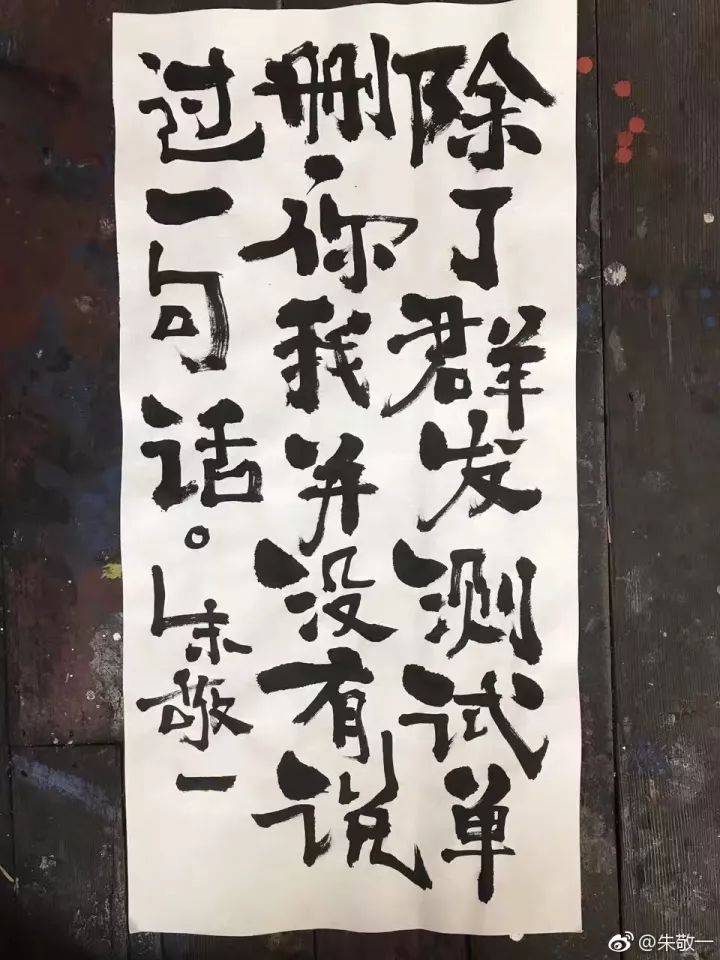 除了群发测试单
删，你我并没有说
过一句话。朱敬一
@朱敬一